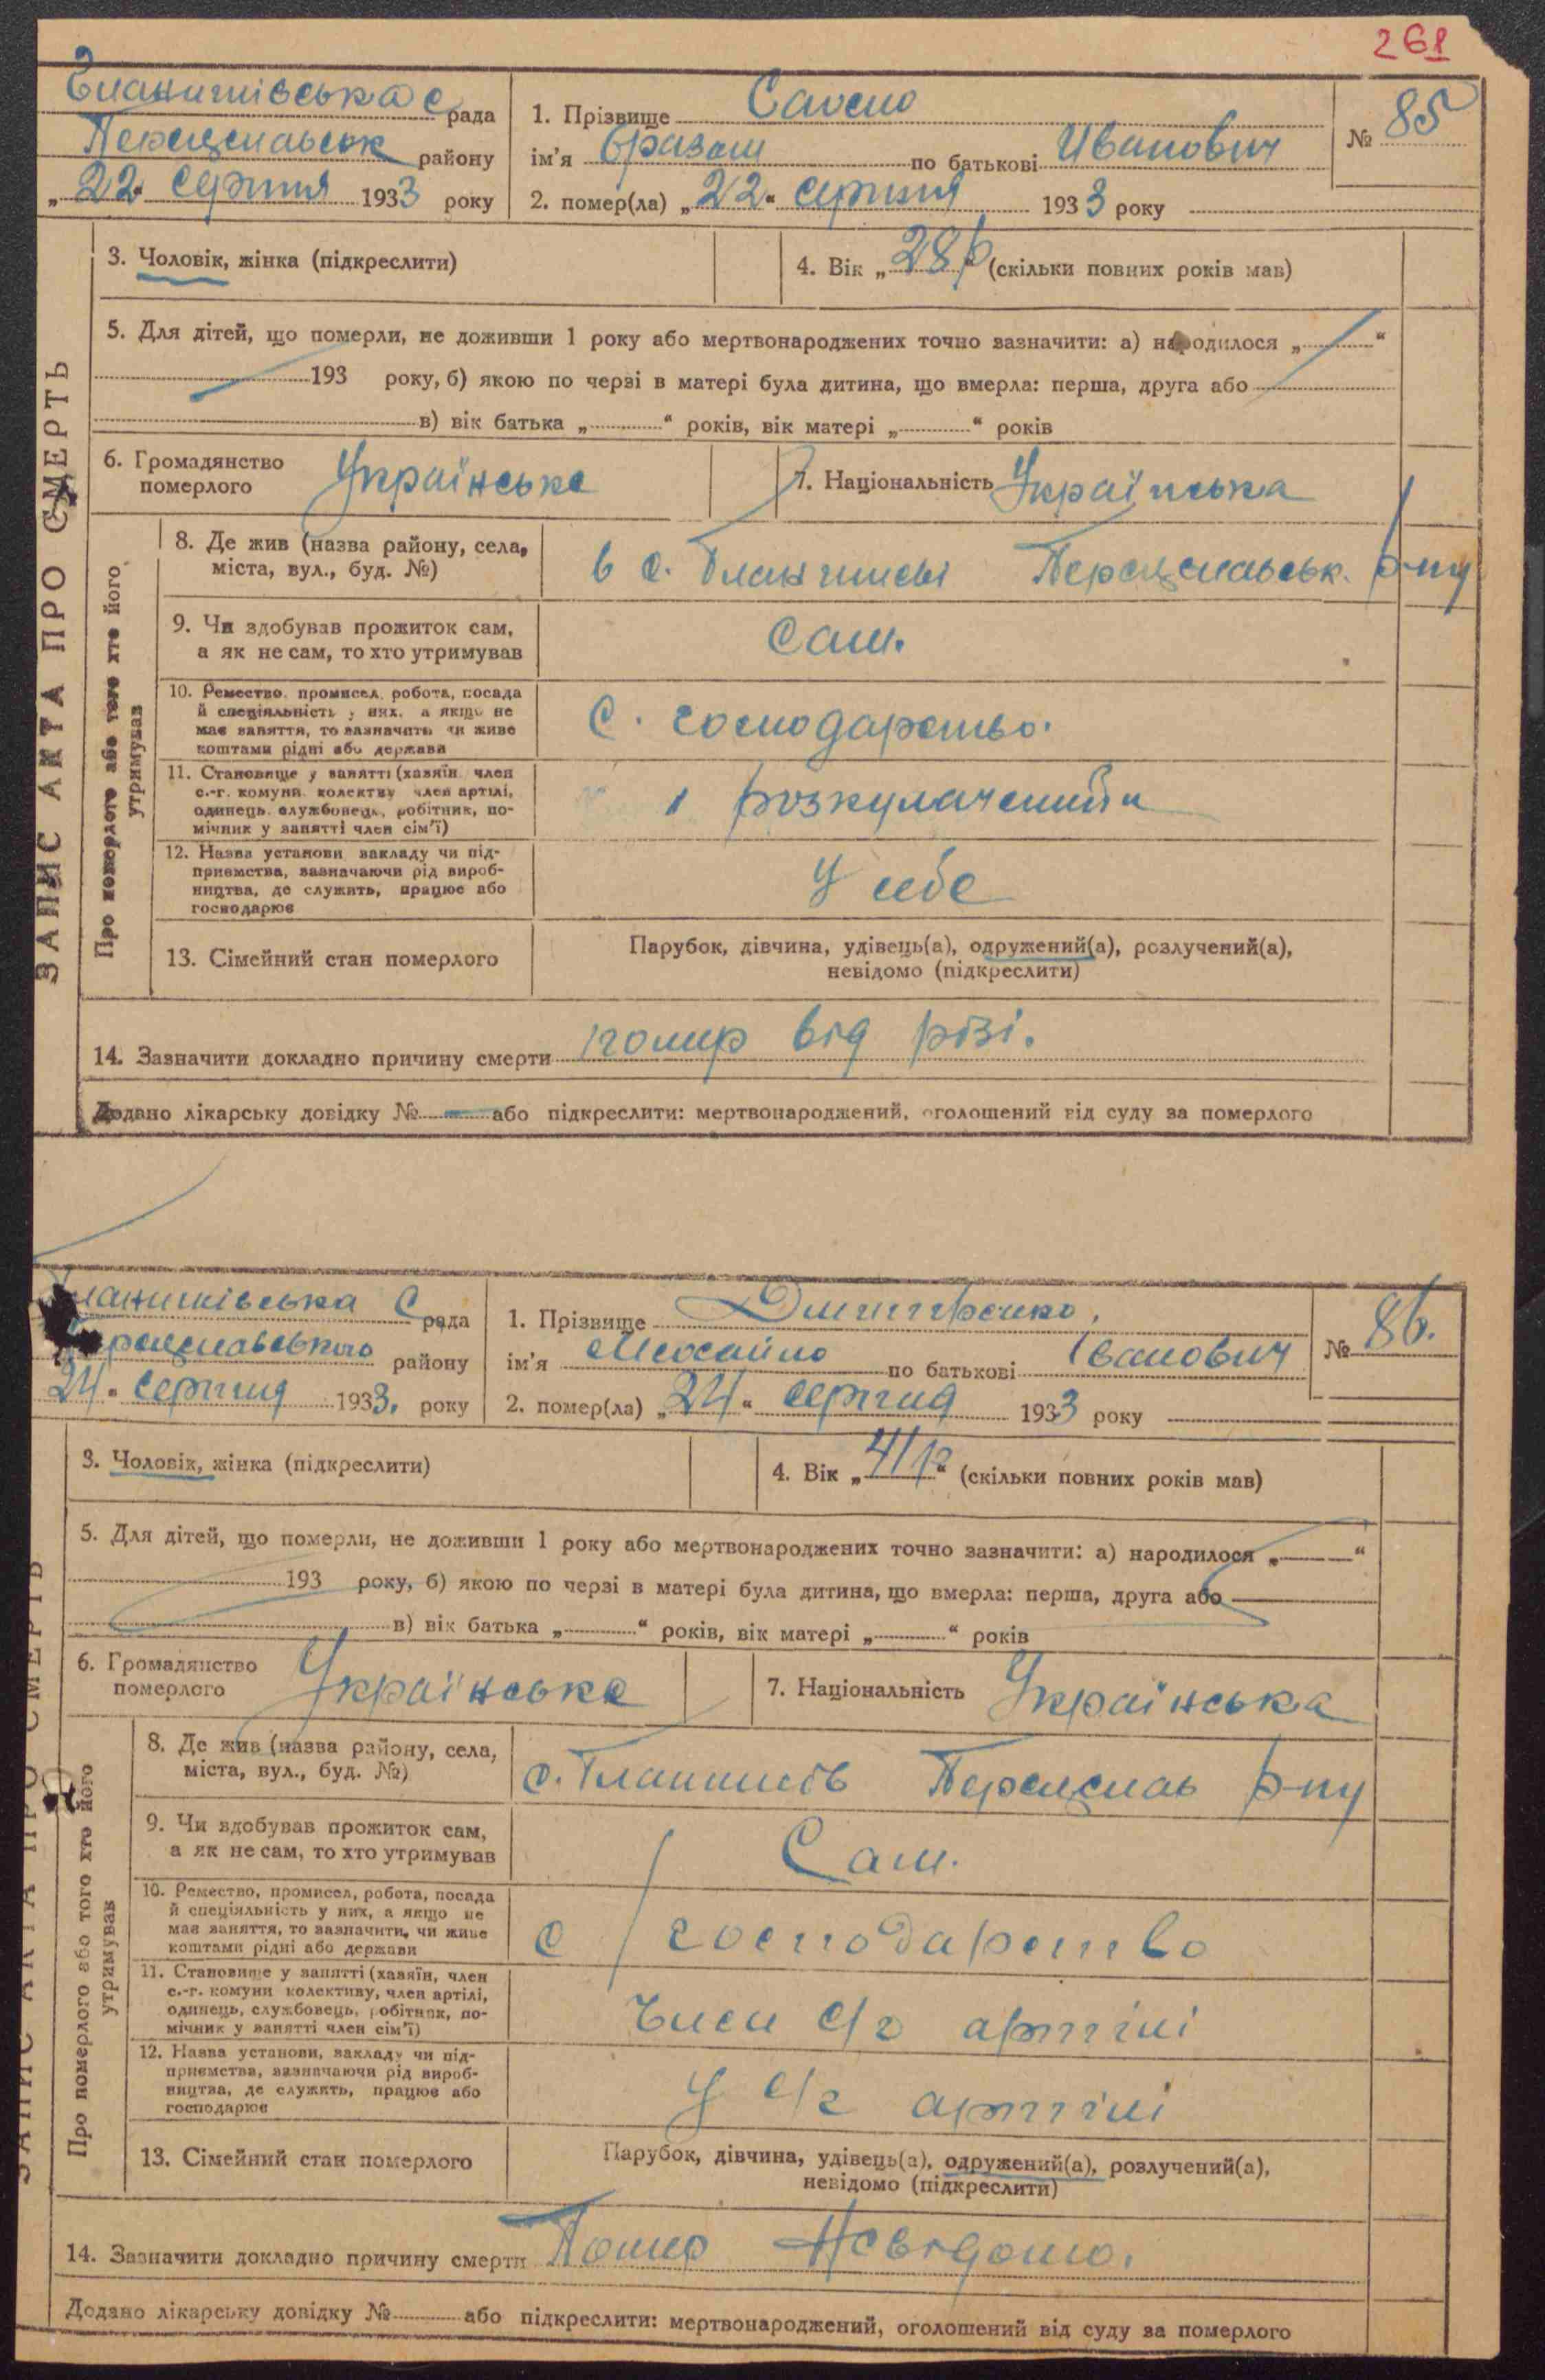 261
рада
Переяславськ району
„ 22 “ серпня 1933 року
1. Прізвище
ім'я по батькові Иванович
№ 85
2. помер(ла) „ 22 “ серпня 1933 року
ЗАПИС АКТА ПРО СМЕРТЬ
3. Чоловік, жінка (підкреслити)
4. Вік „ 28 р “ (скільки повних років мав)
5. Для дітей, що померли, не доживши 1 року або мертвонароджених точно зазначити: а) народилося „ “
193 року, б) якою по черзі в матері була дитина, що вмерла: перша, друга або
в) вік батька „ “ років, вік матері „ “ років
6. Громадянство
померлого
Українське
7. Національність Українська
Про померлого або того хто його
утримував
8. Де жив (назва району, села,
міста, вул., буд. №)
в с. Переяславськ. р-ну
9. Чи здобував прожиток сам,
а як не сам, то хто утримував
Сам.
10. Ремество, промисел, робота, посада
й спеціяльність у них, а якщо не
має заняття, то зазначить чи живе
коштами рідні або держави
С. господарство.
11. Становище у занятті (хазяїн, член
с.-г. комуни, колективу, член артілі,
одинець, службовець, робітник, по-
мічник у занятті член сім'ї)
розкулачений
12. Назва установи, закладу чи під-
приємства, зазначаючи рід вироб-
ництва, де служить, працює або
господарює
У себе
13. Сімейний стан померлого
Парубок, дівчина, удівець(а), одружений(а), розлучений(а),
невідомо (підкреслити)
14. Зазначити докладно причину смерти помир від різі.
Додано лікарську довідку № — або підкреслити: мертвонароджений, оголошений від суду за померлого
рада
Переяславського району
24 “ серпня 1933. року
1. Прізвище Дмитренко.
ім'я Михайло по батькові Іванович
№ 86.
2. помер(ла) „ 24 “ серпня 1933 року
ЗАПИС АКТА ПРО СМЕРТЬ
3. Чоловік, жінка (підкреслити)
4. Вік „ 41 р “ (скільки повних років мав)
5. Для дітей, що померли, не доживши 1 року або мертвонароджених точно зазначити: а) народилося „ “
193 року, б) якою по черзі в матері була дитина, що вмерла: перша, друга або
в) вік батька „ “ років, вік матері „ “ років
6. Громадянство
померлого
Українське
7. Національність Українська
Про померлого або того хто його
утримував
8. Де жив (назва району, села,
міста, вул., буд. №)
с. Переяслав р-ну
9. Чи здобував прожиток сам,
а як не сам, то хто утримував
Сам.
10. Ремество, промисел, робота, посада
й спеціяльність у них, а якщо не
має заняття, то зазначити, чи живе
коштами рідні або держави
С / господарство
11. Становище у занятті (хазяїн, член
с.-г. комуни колективу, член артілі,
одинець, службовець, робітник, по-
мічник у занятті член сім'ї)
Член с/г артілі
12. Назва установи, закладу чи під-
приємства, зазначаючи рід вироб-
ництва, де служить, працює або
господарює
У с/г артілі
13. Сімейний стан померлого
Парубок, дівчина, удівець(а), одружений(а), розлучений(а),
невідомо (підкреслити)
14. Зазначити докладно причину смерти Помир Невідомо.
Додано лікарську довідку № або підкреслити: мертвонароджений, оголошений від суду за померлого